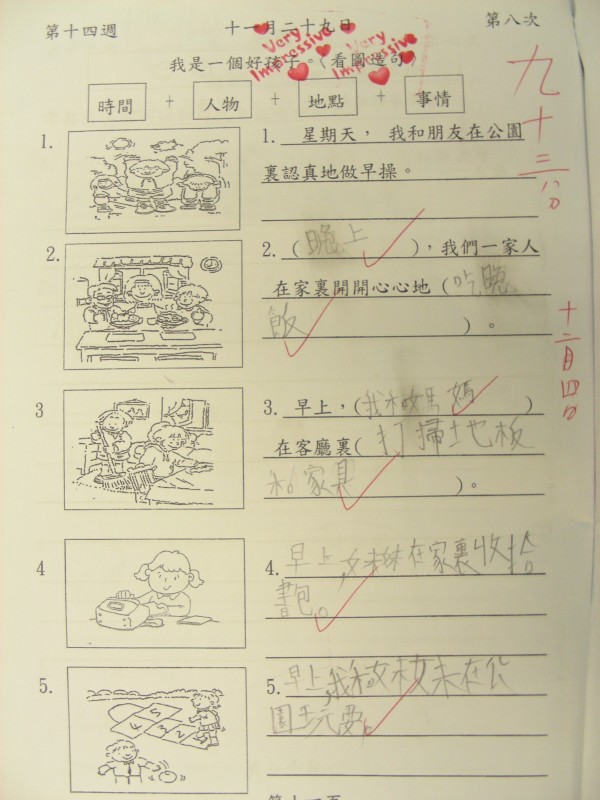 第十四週 十一月二十九日 第八次
Very Impressive Very Impressive
我是一個好孩子。〈看圖造句〉
時間 + 人物 + 地點 + 事情
九十三分
1. 1. 星期天， 我和朋友在公園
裏認真地做早操。
2. 2. （晚上），我們一家人
在家裏開開心心地（吃晚
飯）。
十二月四日
3 3. 早上，（我和媽媽）
在客廳裏（打掃地板
和家具）。
4 4. 早上,妹妹在家裏收拾
書包。
5. 5. 早上,我和妹妹在公
園玩耍。
第十一頁